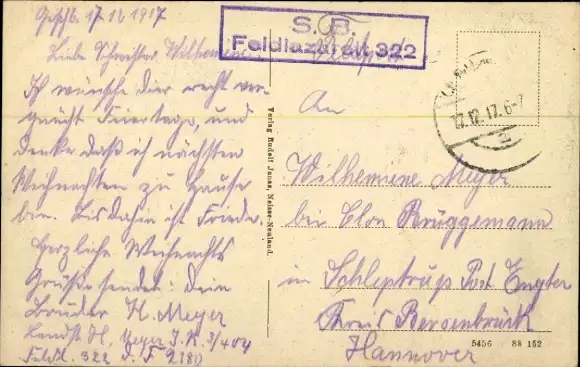 Geschb. 17.12 1917
Liebe Schwester Wilhemene
Ich wünsche dier recht ver-
gnügt Feiertage, und
denke daß ich nächsten
Weihnachten zu Hause
bin. Bis dahin ist Friede.
Herzliche Weihnachts
Grüße sendet dein
Bruder H. Meyer
Landst. H. Meyer I.R. 3/404
Feldl. 322 D. F. 2180
S. B.
Feldlazarett 322
17.12.17.6-7
An
Wilhemene Meyer
bei Clon Brüggemann
in Schleptrup Post Engter
Kreis Bersenbrück
Hannover
Verlag Rudolf Janas, Neisse-Neuland.
5456 88 152